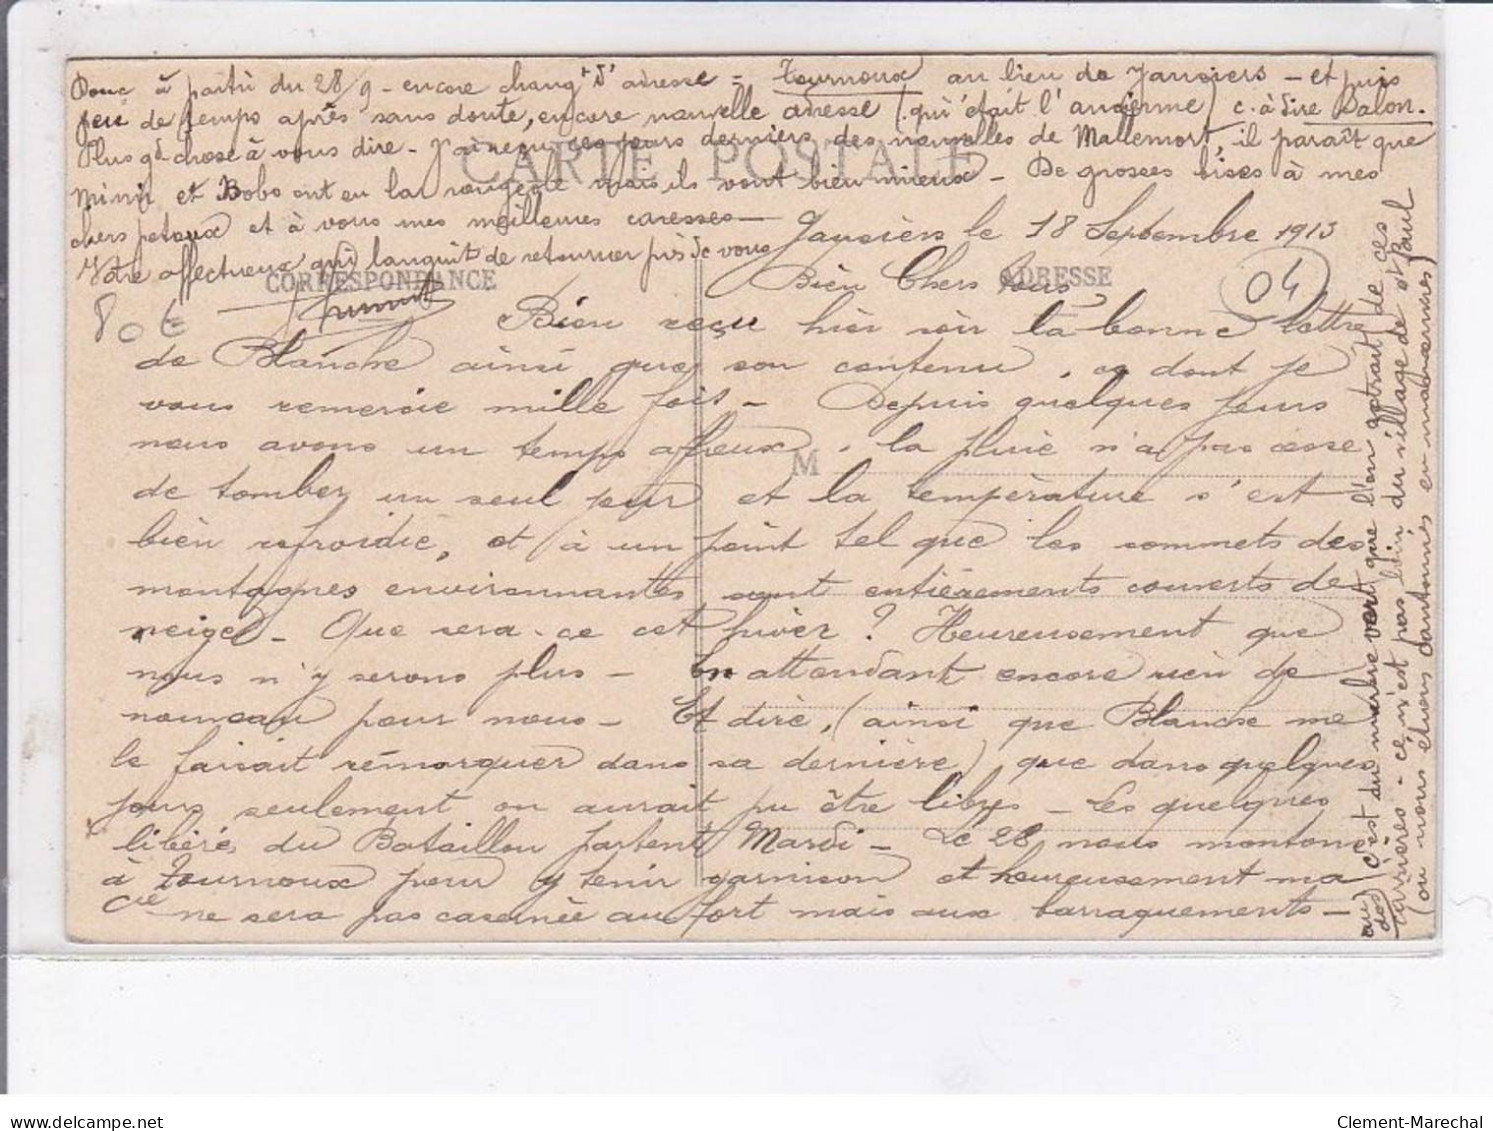 Donc à partir du 28/9 - encore chang.t d'adresse = Tournoux au lieu de Jausiers - et puis
peu de temps après sans doute, encore nouvelle adresse (qui était l'ancienne) c. à dire Salon.
Plus gd chose à vous dire - J'ai reçu ces jours derniers des nouvelles de Mallemort, il paraît que
Mimi et Bobo ont eu la rougeole mais ils vont bien mieux - De grosses bises à mes
chers petoux et à vous mes meilleures caresses -
Votre affectueux qui languit de retourner près de vous
CARTE POSTALE
CORRESPONDANCE
ADRESSE
M
80€
04
Jausiers le 18 Septembre 1913
Bien Chers tous,
Bien reçu hier soir la bonne lettre
de Blanche ainsi que son contenu, dont je
vous remercie mille fois - Depuis quelques jours
nous avons un temps affreux, la pluie n'a pas cessé
de tomber un seul jour et la température s'est
bien refroidie, et à un point tel que les sommets des
montagnes environnantes sont entièrements couverts de
neige - Que sera-ce cet hiver ? Heureusement que
nous n'y serons plus - En attendant encore rien de
nouveau pour nous - Et dire, (ainsi que Blanche me
le faisait remarquer dans sa dernière) que dans quelques
jours seulement on aurait pu être libres - Les quelques
libérés du Bataillon partent Mardi - Le 28 nous montons
à Tournoux pour y tenir garnison et heureusement ma
Cie ne sera pas casernée au fort mais aux barraquements -
au dos (c'est du marbre vert que l'on extrait de ces
carrières - ce n'est pas loin du village de St Paul
(où nous étions cantonnés en manœuvres)
Clement-Marechal
www.delcampe.net